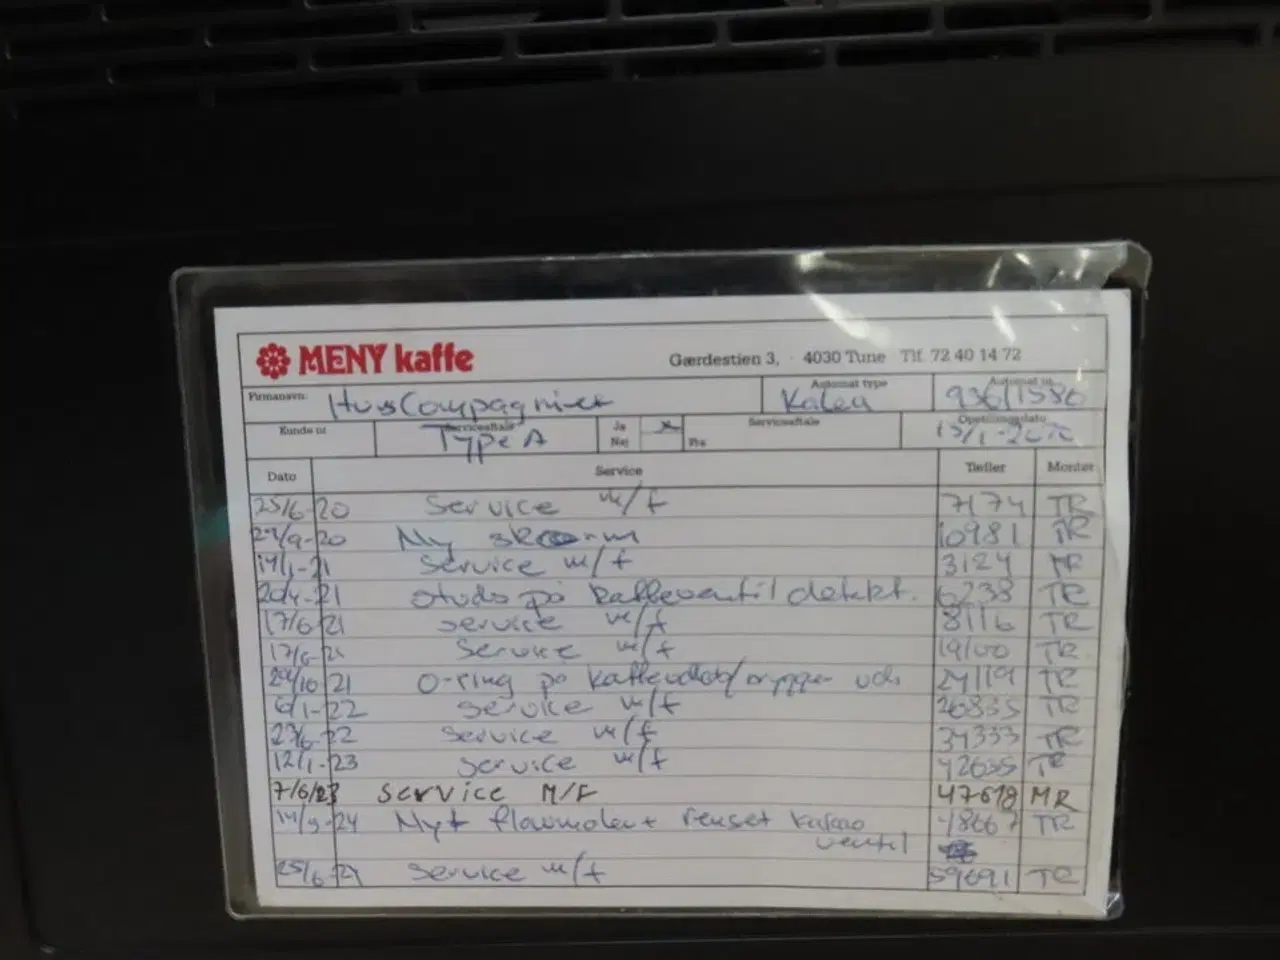 MENY kaffe Gærdestien 3, 4030 Tune Tlf. 72 40 14 72
Firmanavn: HusCompagniet Automat type Kalea Automat nr. 936/1586
Kunde nr Serviceaftale Type A Ja x Nej Fra Serviceaftale Opstillingsdato
Dato Service Tæller Montør
25/6-20 Service m/f 7174 TR
-20 Ny 10981 TR
14/1-21 Service m/f 3124
20/4-21 studs på kaffeventil defekt. 6238 TR
17/6 21 service m/f 8116 TR
17/6 21 Service m/f 19100 TR
/10 21 O-ring på ud. 24119 TR
6/1-22 service m/f 26835 TR
27/6-22 service m/f 34333 TR
12/1-23 service m/f 42635 TR
7/6/23 service M/F 47618 MR
-24 Nyt renset kakao 48667 TR
ventil
25/6-24 Service m/f 59691 TR